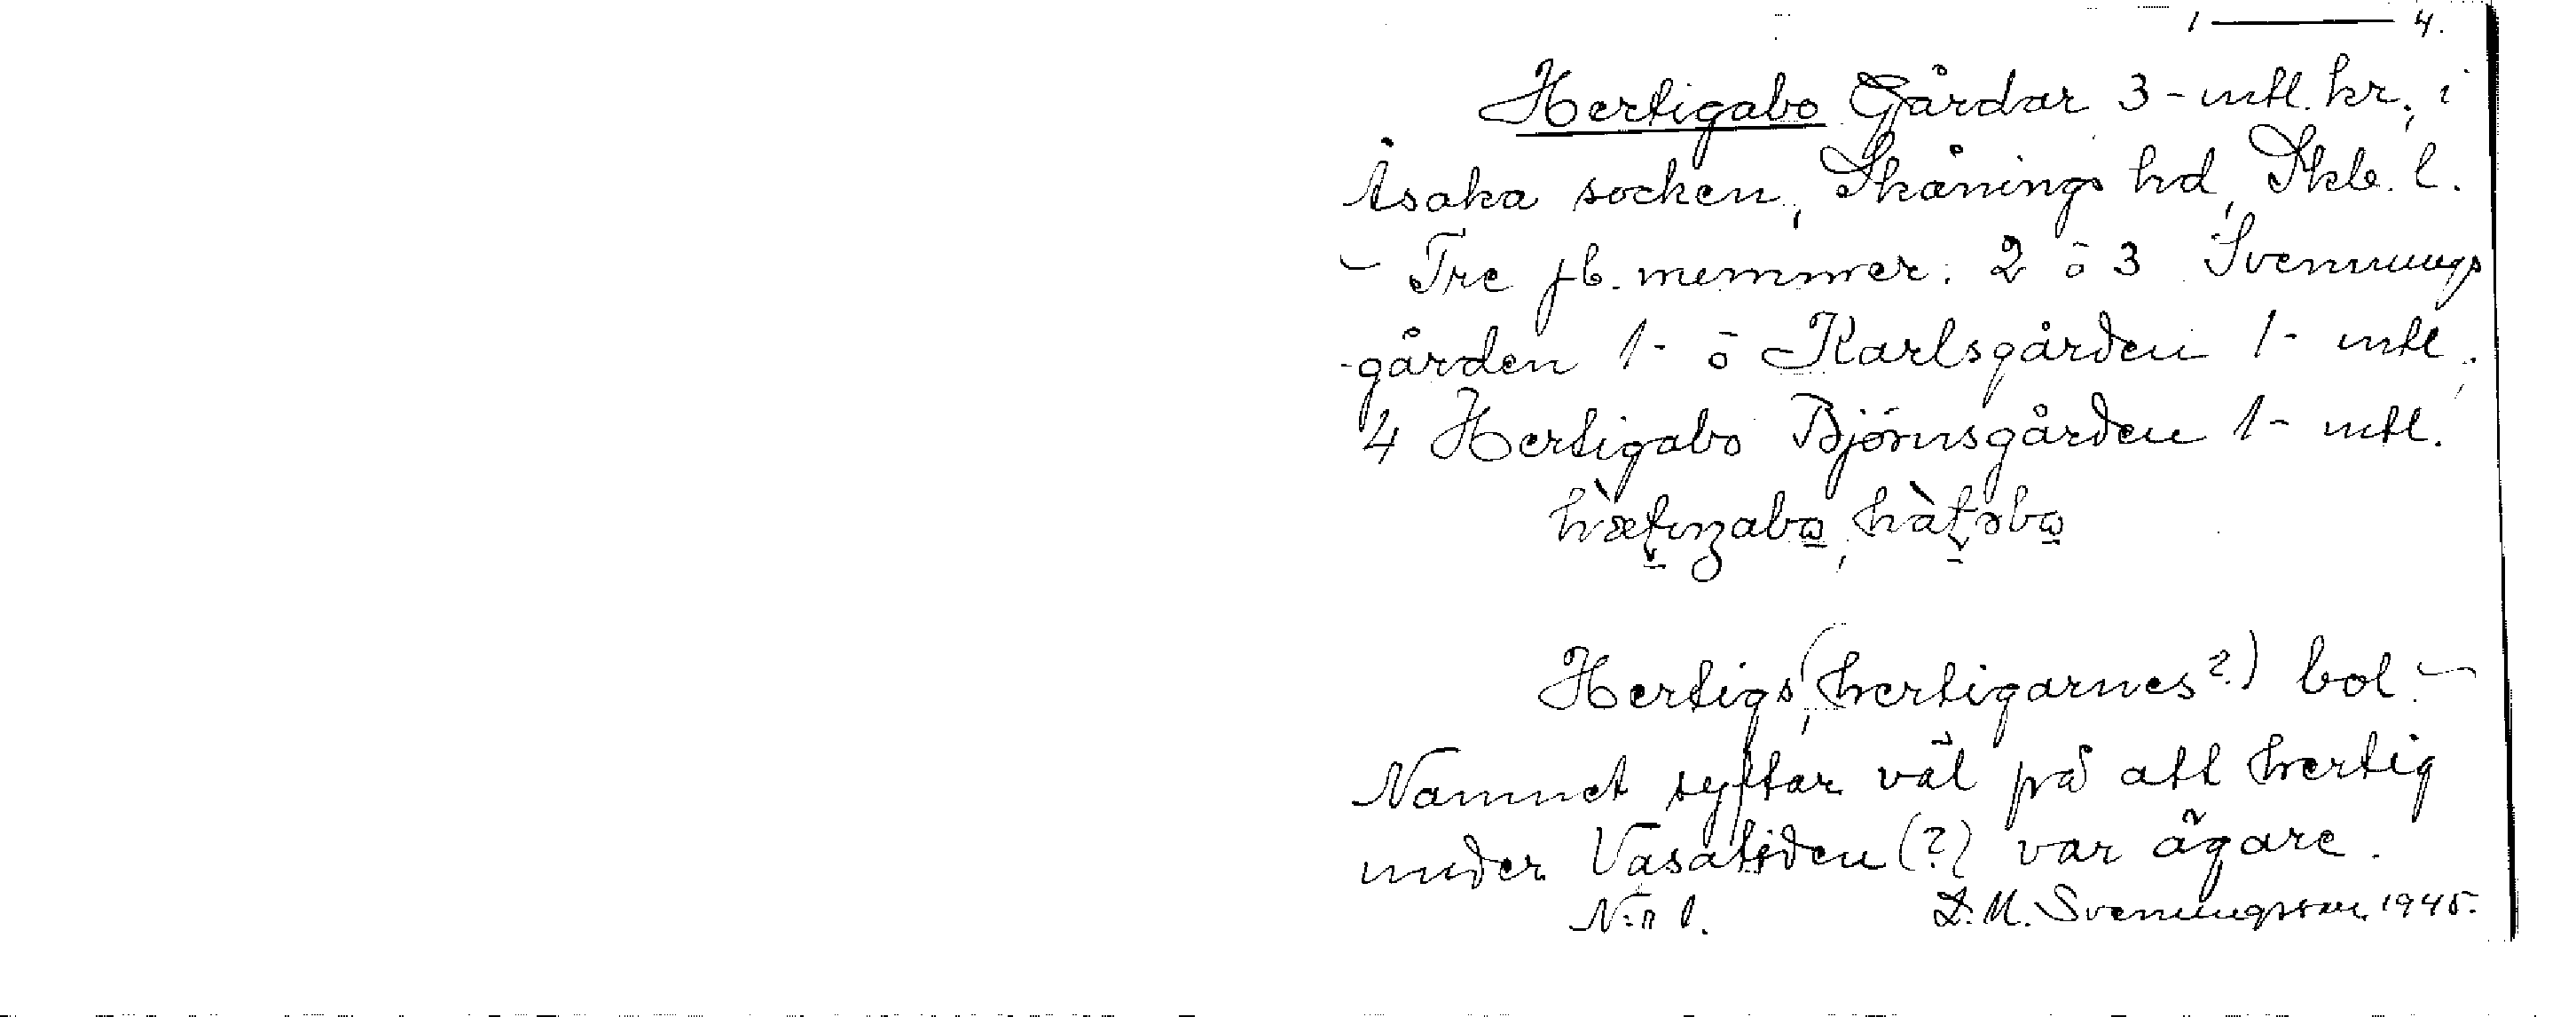 1 — 4.
Hertigabo Gårdar 3 - mtl. kr. i
Åsaka socken, Skånings hd, Skb. l.
- Tre jb. nummer. 2 ō 3 Svennungs
-gården 1 - ō Karlsgården 1 - mtl.,
4 Hertigabo Björnsgården 1 - mtl.
Hertigs, (hertigarnes?) bol -
Namnet syftar väl på att hertig
under Vasatiden (?) var ägare.
N:r 1. D. M. Svenungsson 1945.